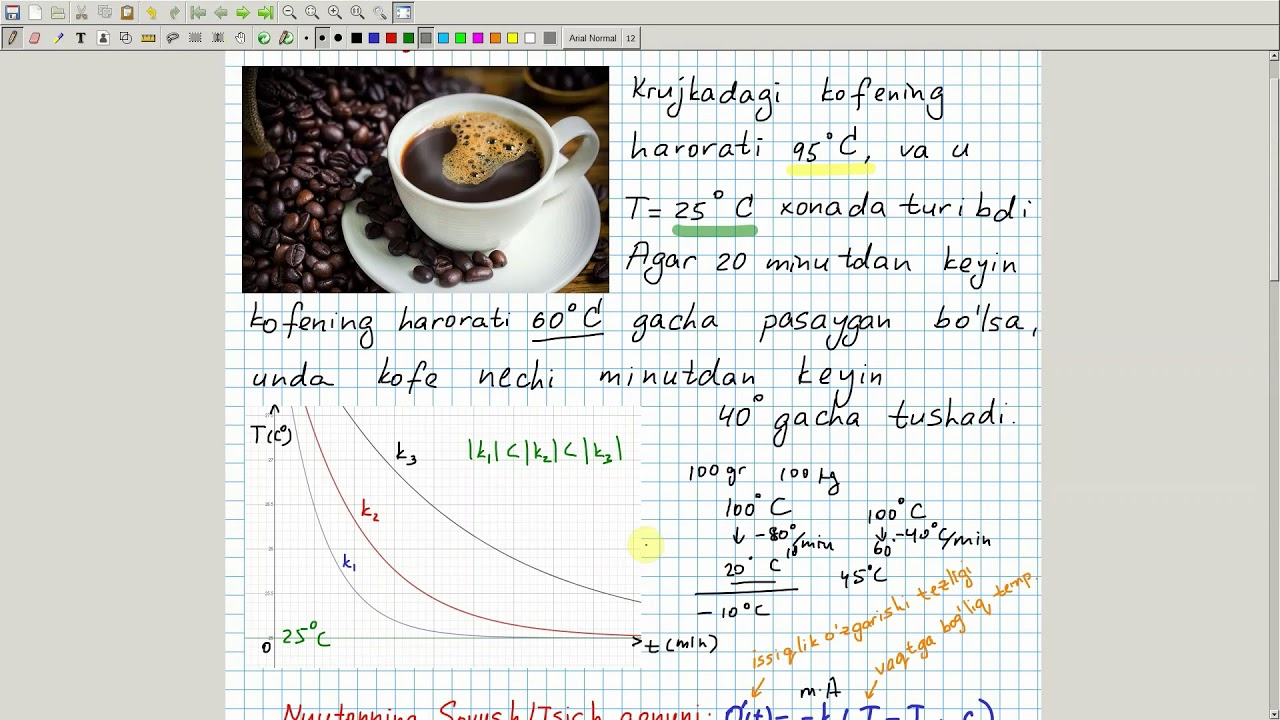 Arial Normal 12
Krujkadagi kofening
harorati 95°C, va u
T= 25°C xonada turibdi
Agar 20 minutdan keyin
kofening harorati 60°C gacha pasaygan bo'lsa,
unda kofe nechi minutdan keyin
40° gacha tushadi.
T(c°)
k₃
|k₁| < |k₂| < |k₃|
k₂
k₁
25°C
0
t(min)
100 gr 100 kg
100°C 100°C
↓ -80°/min ↓ -40°C/min
20°C 60°
45°C
-10°C
issiqlik o'zgarishi tezligi
vaqtga bog'liq temp.
m.A
Nyutonning Sovush/Isish qonuni: